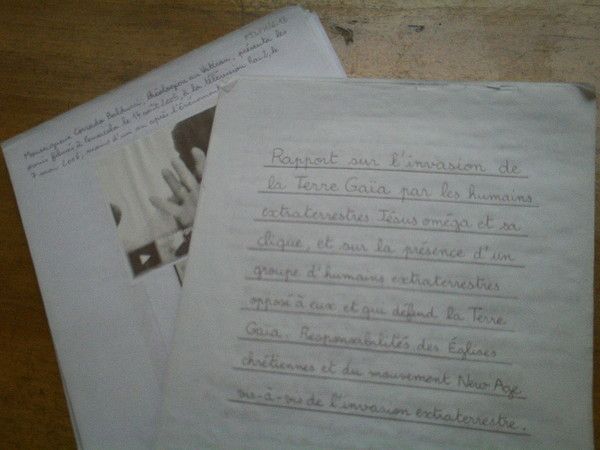 Monseigneur Corrado Balducci, théologien au Vatican, présenta les
à la télévision Rai 2, le
Rapport sur l'invasion de
la Terre Gaïa par les humains
extraterrestres Jésus oméga et sa
clique, et sur la présence d'un
groupe d'humains extraterrestres
opposé à eux et qui défend la Terre
Gaïa. Responsabilités des Églises
chrétiennes et du mouvement New Age
vis-à-vis de l'invasion extraterrestre.